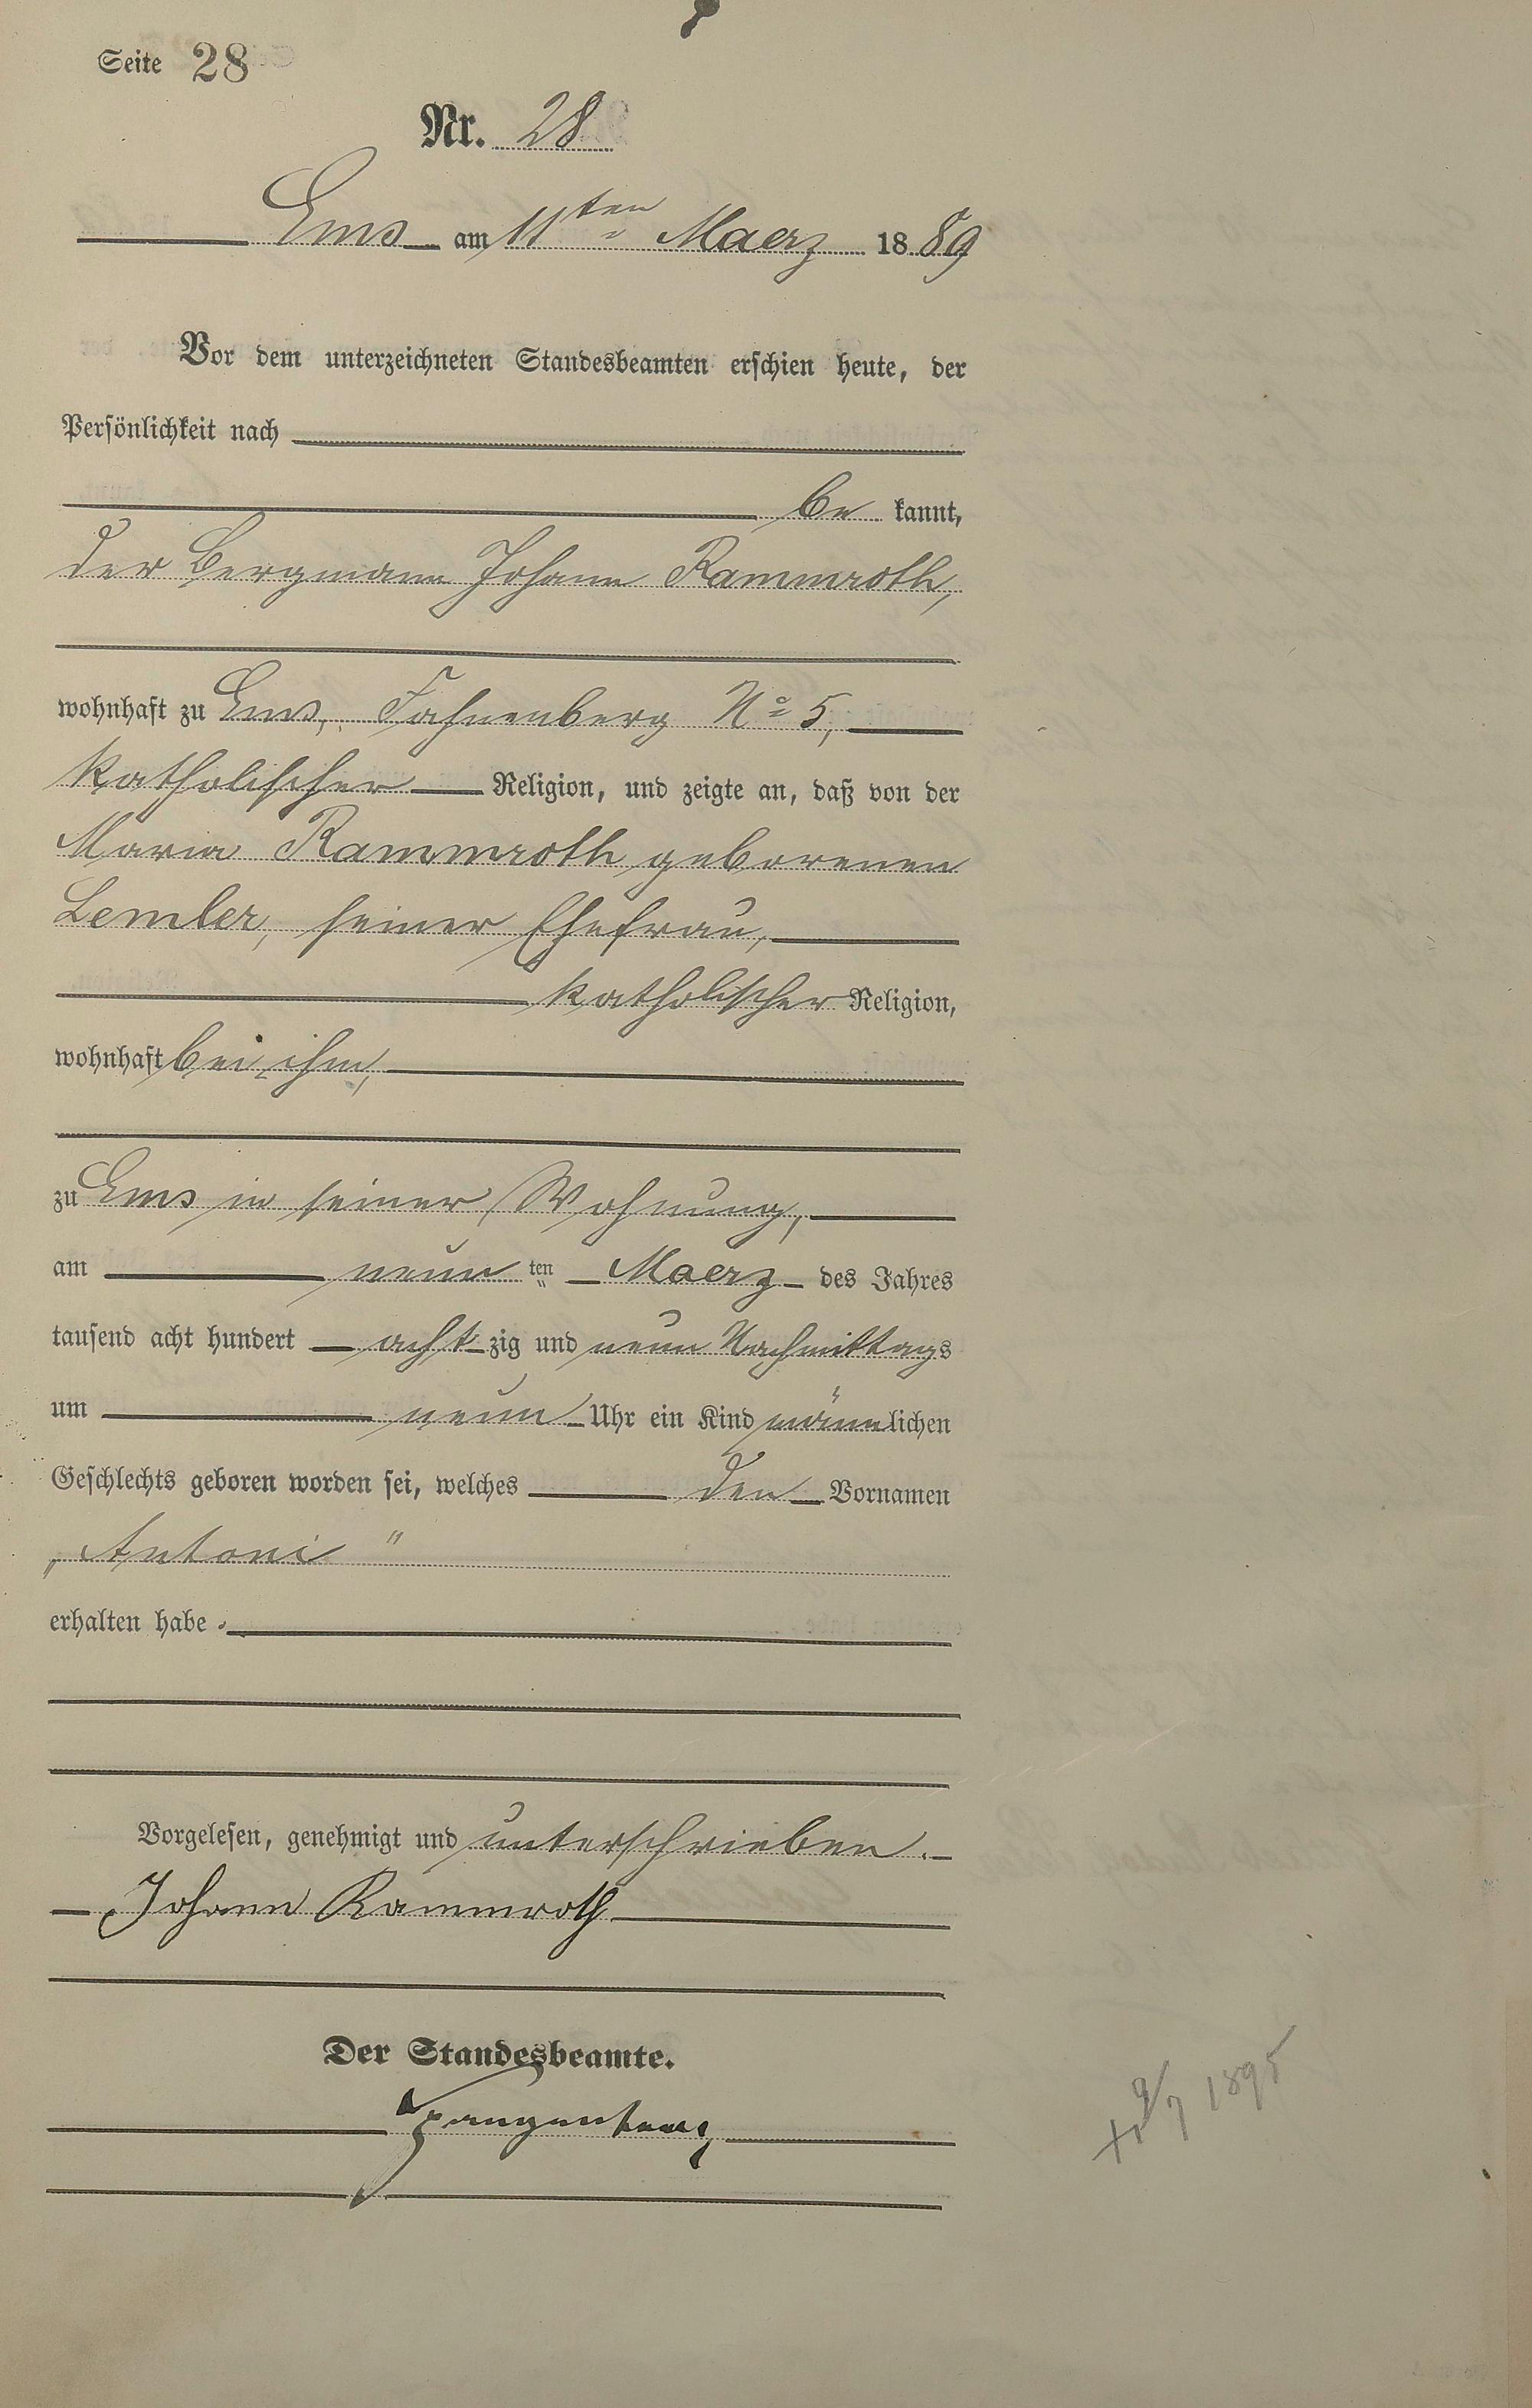 Seite 28
Nr. 28
Ems am 11ten Maerz 1889
Vor dem unterzeichneten Standesbeamten erschien heute, der
Persönlichkeit nach
be kannt,
der Bergmann Johann Rammroth,
wohnhaft zu Ems, Fahnenberg No 5,
katholischer Religion, und zeigte an, daß von der
Maria Rammroth geborenen
Lemler, seiner Ehefrau,
katholischer Religion,
wohnhaft bei ihm,
zu Ems in seiner Wohnung,
am neun ten Maerz des Jahres
tausend acht hundert acht zig und neun Nachmittags
um neun Uhr ein Kind männlichen
Geschlechts geboren worden sei, welches den Vornamen
„Antoni"
erhalten habe.
Vorgelesen, genehmigt und unterschrieben.
Johann Rammroth
Der Standesbeamte.
1895